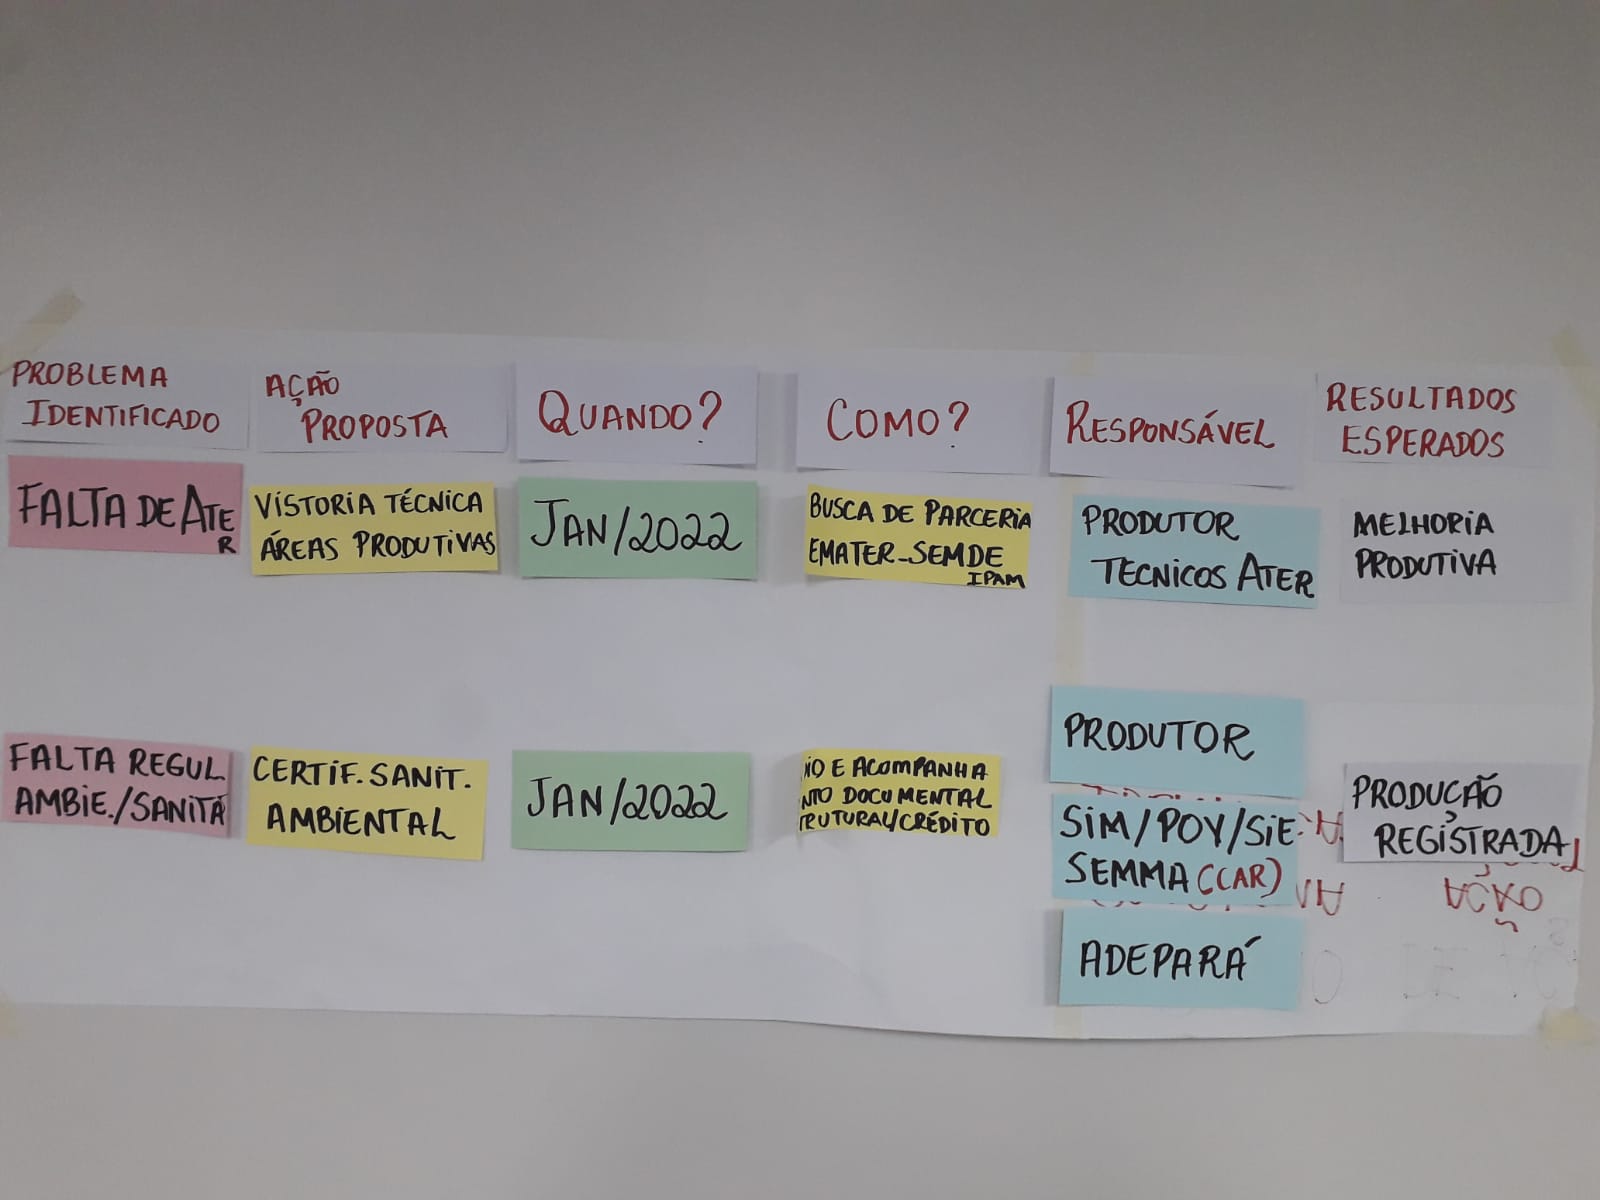 PROBLEMA
IDENTIFICADO
AÇÃO
PROPOSTA
QUANDO?
COMO?
RESPONSÁVEL
RESULTADOS
ESPERADOS
FALTA DE ATE
R
VISTORIA TÉCNICA
ÁREAS PRODUTIVAS
JAN/2022
BUSCA DE PARCERIA
EMATER-SEMDE
IPAM
PRODUTOR
TECNICOS ATER
MELHORIA
PRODUTIVA
FALTA REGUL
AMBIE./SANITÁ
CERTIF. SANIT.
AMBIENTAL
JAN/2022
IO E ACOMPANHA
NTO DOCUMENTAL
TRUTURAL/CRÉDITO
PRODUTOR
SIM/POV/SIE
SEMMA (CAR)
ADEPARÁ
PRODUÇÃO
REGISTRADA
AÇÃO